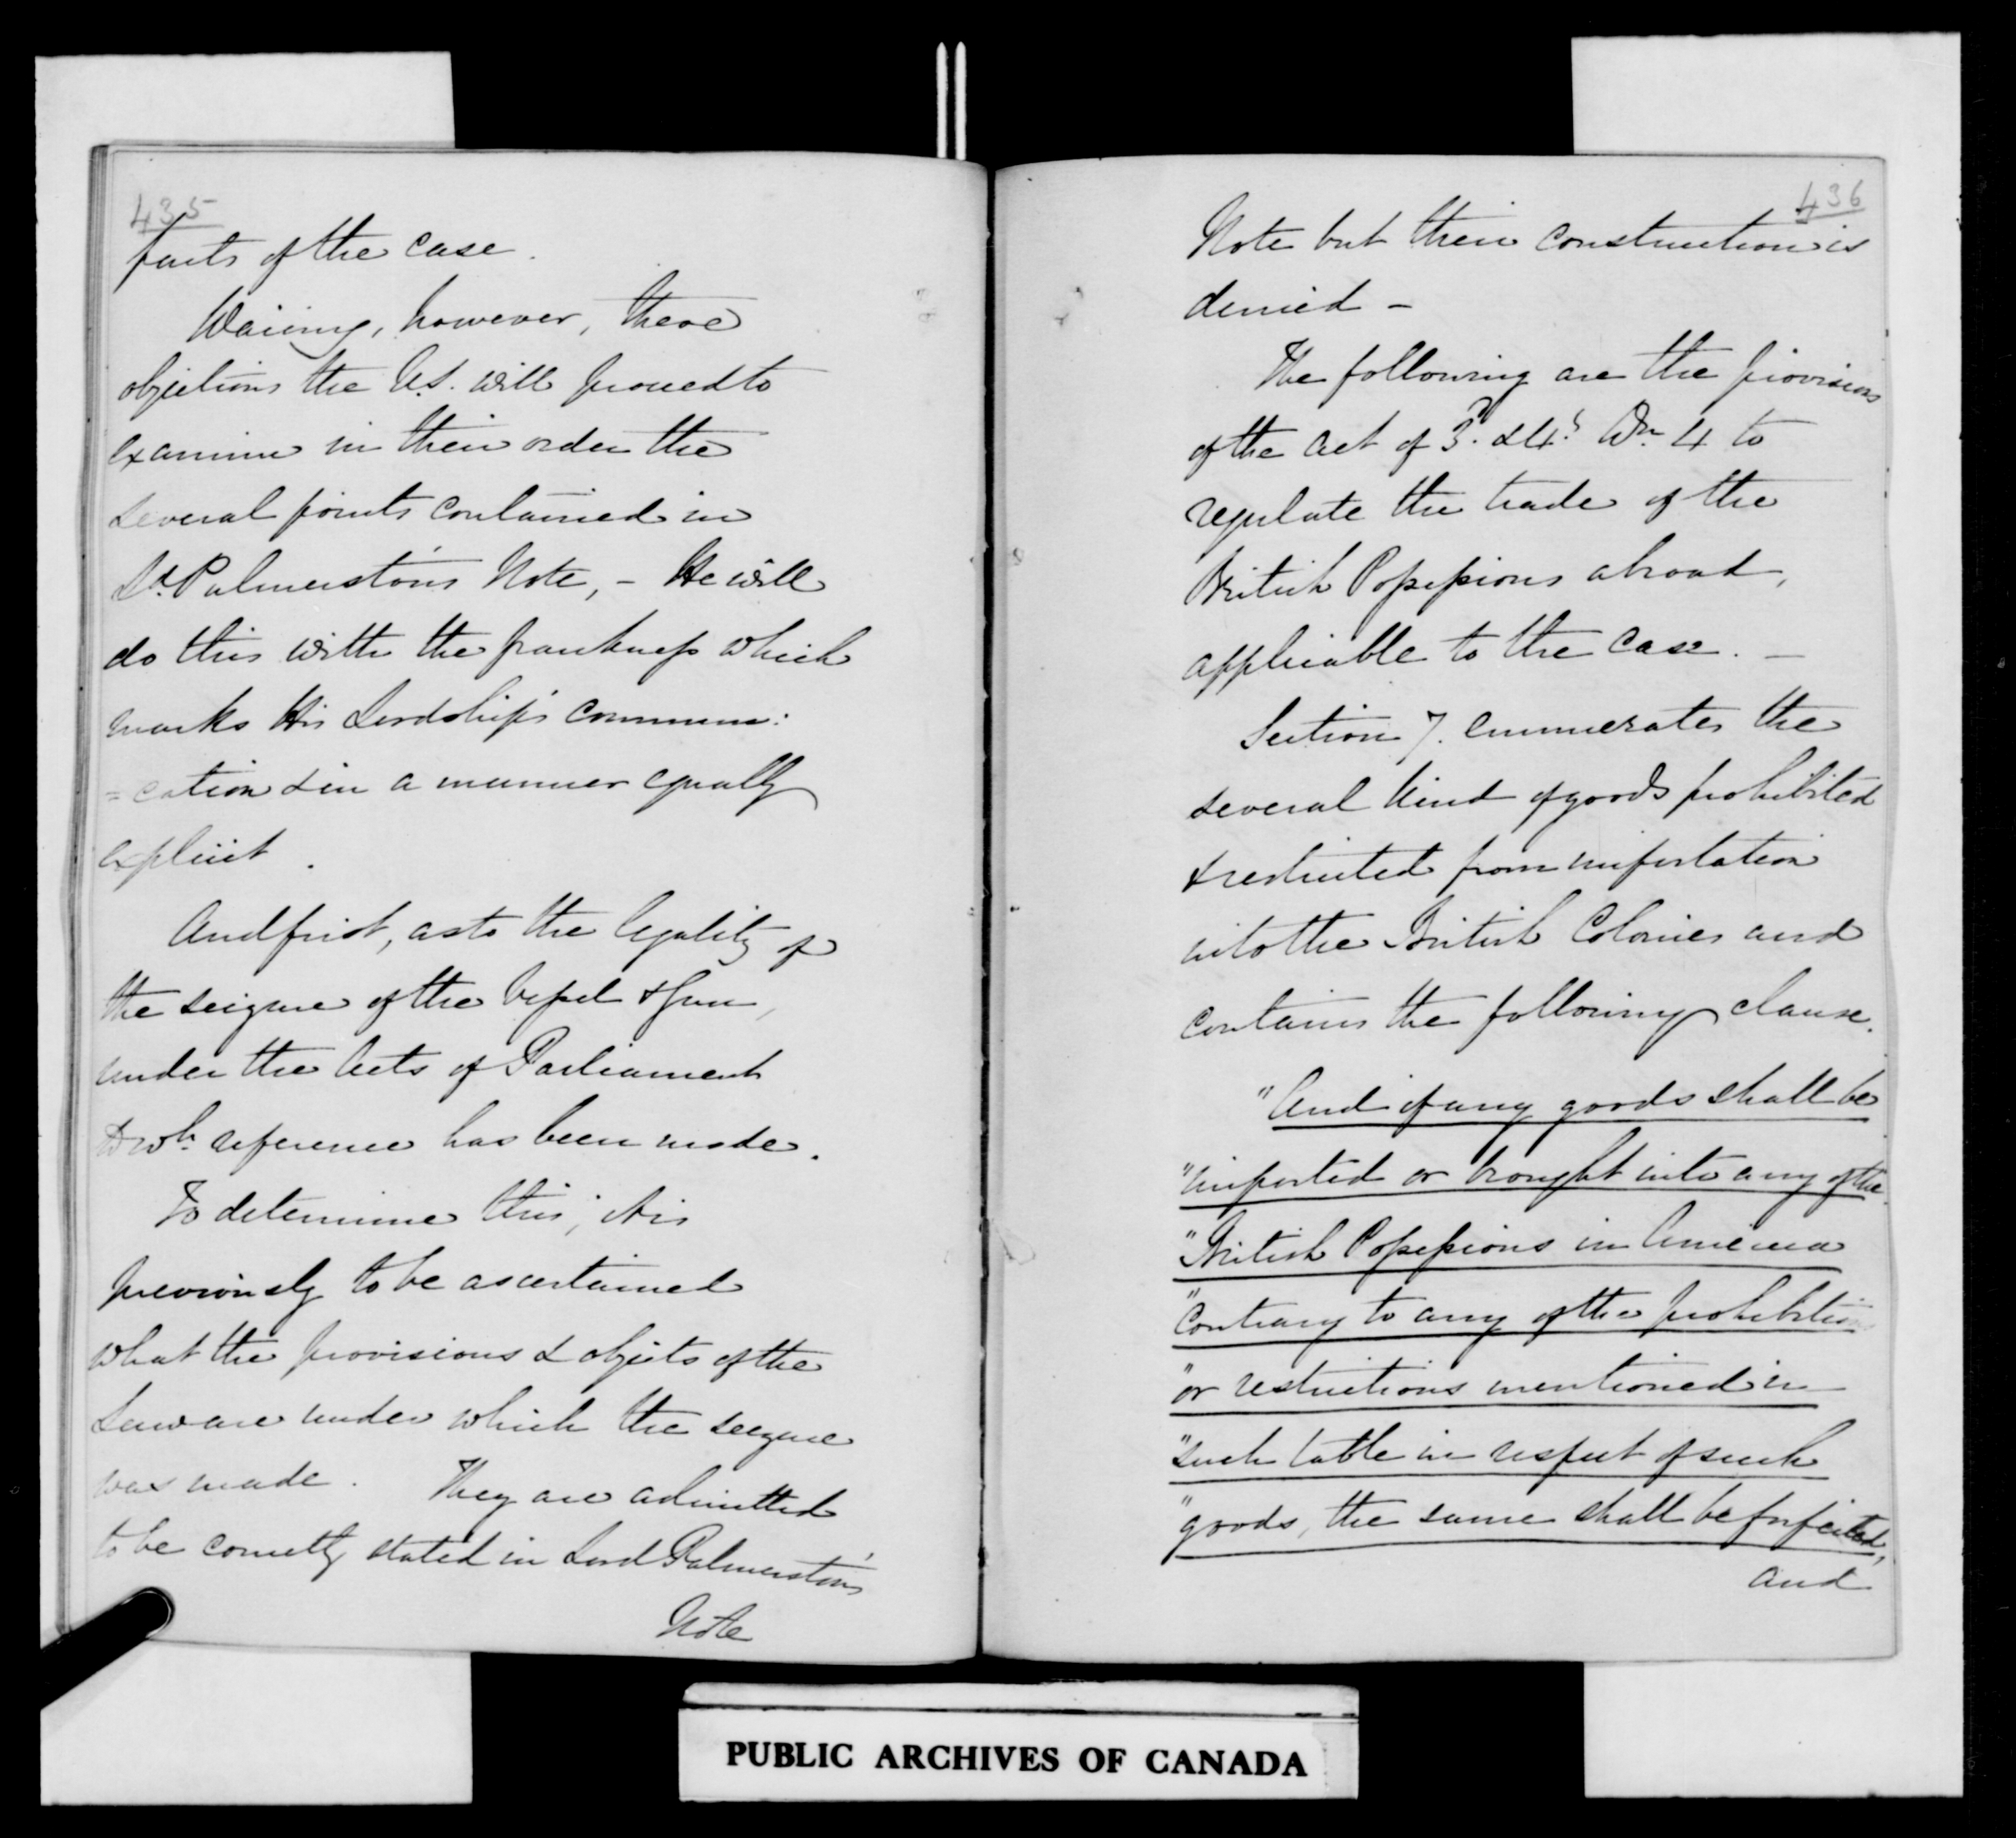 435
facts of the case.
Waiving, however, these
objections the U.S. will proceed to
examine in their order the
several points contained in
Ld. Palmerston's Note, - He will
do this with the frankness which
marks His Lordship's commun:
=cation & in a manner equally
explicit.
And first, as to the legality of
the seizure of the Vessel & Gun,
under the Acts of Parliament
to wh. reference has been made.
To determine this, it is
previously to be ascertained
what the provisions & objects of the
Law are under which the seizure
was made. They are admitted
to be correctly stated in Lord Palmerston's
Note
436
Note but their construction is
denied -
The following are the provisions
of the act of 3d. & 4th Wm. 4 to
regulate the trade of the
British Possessions abroad,
applicable to the case. -
Section 7. enumerates the
several kind of goods prohibited
& restricted from importation
into the British Colonies and
contains the following clause.
"And if any goods shall be
"imported or brought into any of the
"British Possessions in America
"contrary to any of the prohibitions
"or restrictions mentioned in
"such table in respect of such
"goods, the same shall be forfeited,
and
PUBLIC ARCHIVES OF CANADA